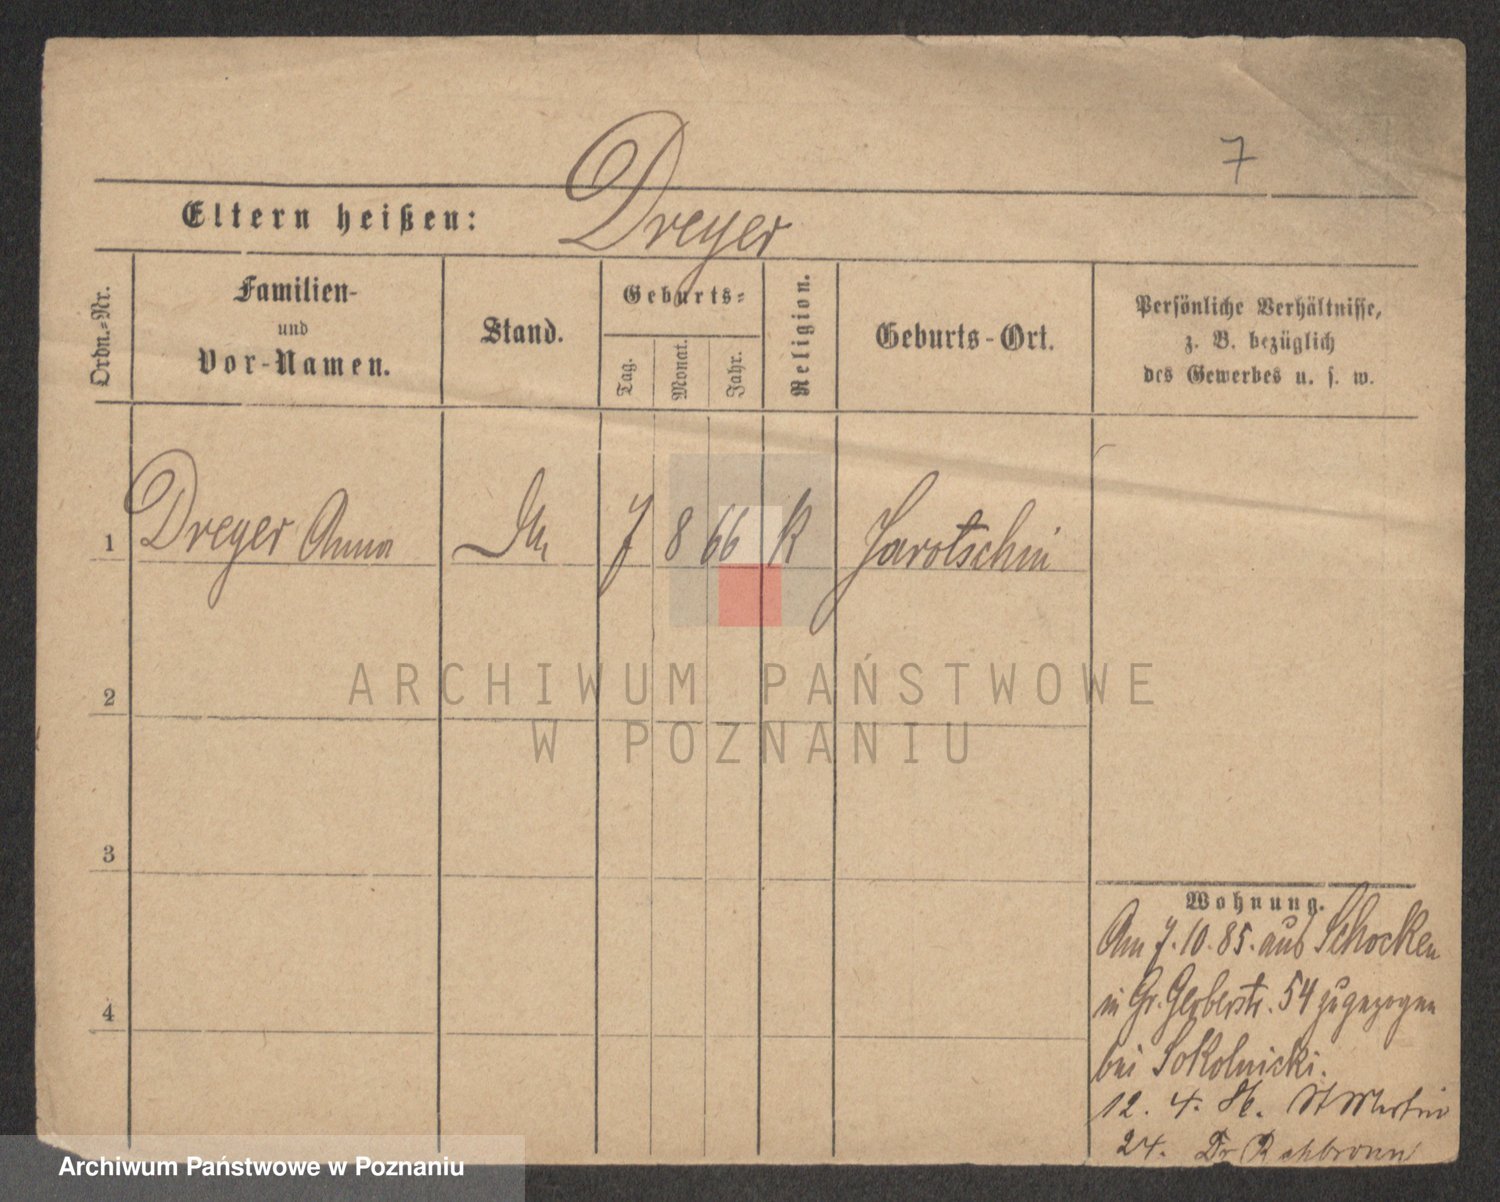 7
Eltern heißen: Dreyer
Ordn.-Nr.
Familien-
und
Vor-Namen.
Stand.
Geburts-
Tag.
Monat.
Jahr.
Religion.
Geburts-Ort.
Persönliche Verhältnisse,
z. B. bezüglich
des Gewerbes u. s. w.
1 Dreyer Anna 7 8 66 k Jarotschin
2
3
4
Wohnung.
Am 7. 10. 85. aus Schocken
in Gr. Gerberstr. 54 zugezogen
bei Sokolnicki.
12. 4. 86. St Martin
24. Dr
ARCHIWUM PAŃSTWOWE
W POZNANIU
Archiwum Państwowe w Poznaniu